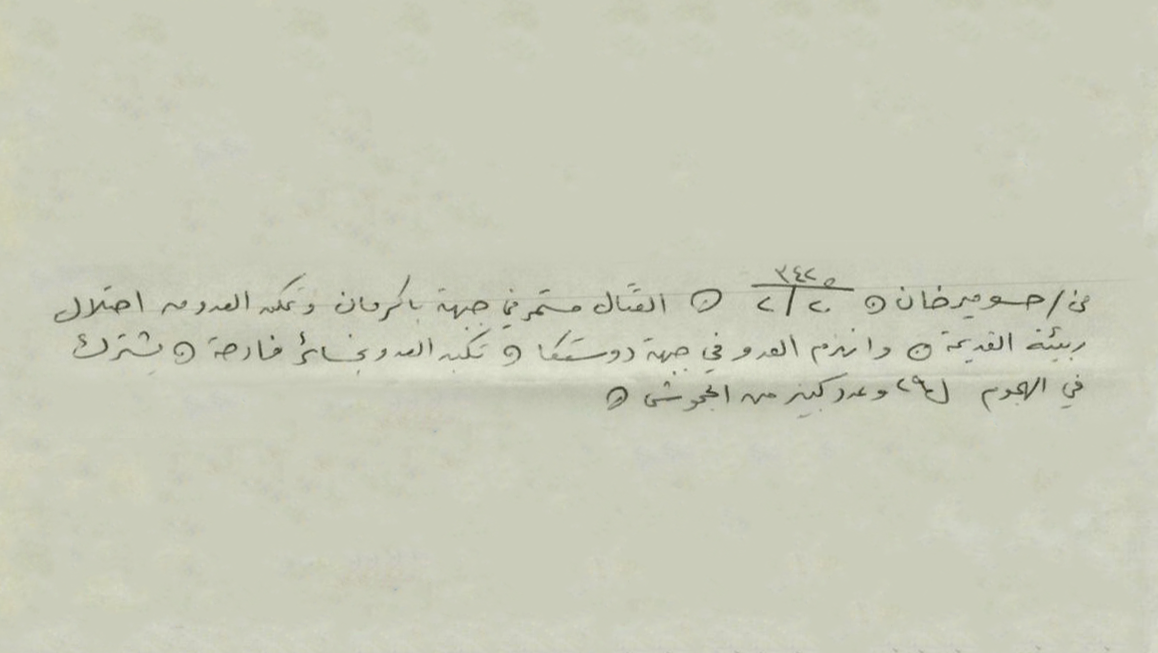 من / حسو ميرخان ⊙ ٣٤٢٥
٢/٢٠ ⊙ القتال مستمر في جبهة باكرمان وتمكن العدو من احتلال
ربيئة القديمة ⊙ وانهزم العدو في جبهة دوستكا ⊙ تكبد العدو بخسائر فادحة ⊙ يشترك
في الهجوم ل٢٩ وعدد كبير من الجحوش ⊙